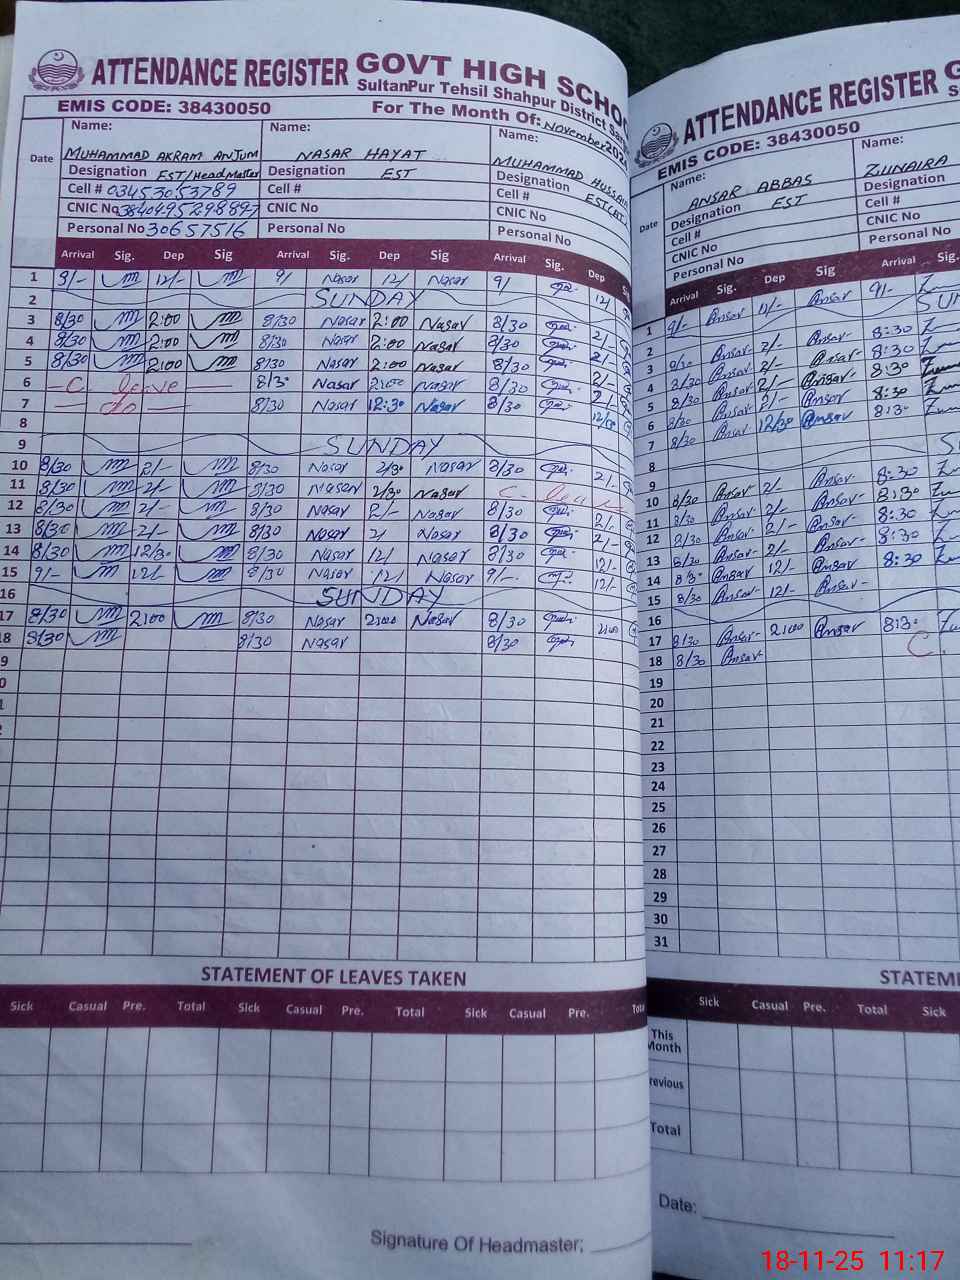 ATTENDANCE REGISTER GOVT HIGH SCHO
SultanPur Tehsil Shahpur District Sar
EMIS CODE: 38430050 For The Month Of: November 202
Date Name: Name: Name:
MUHAMMAD AKRAM ANJUM NASAR HAYAT MUHAMMAD HUSSAIN
Designation EST/HeadMaster Designation EST Designation
Cell # 03453053789 Cell # Cell #
CNIC No CNIC No CNIC No
Personal No 30657516 Personal No Personal No
Arrival Sig. Dep Sig Arrival Sig. Dep Sig Arrival Sig. Dep
1 9/- 12/- 9/ Nasar 12/ Nasar 9/ 12/
2 SUNDAY
3 8/30 2:00 8/30 Nasar 2:00 Nasar 8/30 2/-
4 8/30 2:00 8/30 Nasar 2:00 Nasar 8/30 2/-
5 8/30 2:00 8/30 Nasar 2:00 Nasar 8/30 2/-
6 C. leave 8/30 Nasar 2:00 Nasar 8/30 2/-
7 do 8/30 Nasar 12:30 Nasar 8/30 12/30
8
9 SUNDAY
10 8/30 2/- 8/30 Nasar 2/30 Nasar 8/30 2/-
11 8/30 2/- 8/30 Nasar 2/30 Nasar C. leave
12 8/30 2/- 8/30 Nasar 2/- Nasar 8/30 2/-
13 8/30 2/- 8/30 Nasar 2/ Nasar 8/30 2/-
14 8/30 12/30 8/30 Nasar 12/ Nasar 8/30 12/-
15 9/- 12/- 8/30 Nasar 12/ Nasar 9/- 12/-
16 SUNDAY
17 8/30 2:00 8/30 Nasar 2:00 Nasar 8/30 2:00
18 8/30 8/30 Nasar 8/30
STATEMENT OF LEAVES TAKEN
Sick Casual Pre. Total Sick Casual Pre. Total Sick Casual Pre. Total
Signature Of Headmaster:
ATTENDANCE REGISTER G
EMIS CODE: 38430050
Date Name: Name:
ANSAR ABBAS ZUNAIRA
Designation EST Designation
Cell # Cell #
CNIC No CNIC No
Personal No Personal No
Arrival Sig. Dep Sig Arrival Sig.
1 9/- Ansar 12/- Ansar 9/-
2 SUN
3 8/30 Ansar 2/- Ansar 8:30
4 8/30 Ansar 2/- Ansar 8:30
5 8/30 Ansar 2/- Ansar 8:30
6 8/30 Ansar 2/- Ansar 8:30
7 8/30 Ansar 12/30 Ansar 8:30
8
9 S
10 8/30 Ansar 2/- Ansar 8:30
11 8/30 Ansar 2/- Ansar 8:30
12 8/30 Ansar 2/- Ansar 8:30
13 8/30 Ansar 2/- Ansar 8:30
14 8:30 Ansar 12/- Ansar 8:30
15 8/30 Ansar 12/- Ansar
16
17 8/30 Ansar 2:00 Ansar 8:30
18 8/30 Ansar C.
19
20
21
22
23
24
25
26
27
28
29
30
31
STATEM
Sick Casual Pre. Total Sick
This Month
revious
Total
Date:
18-11-25 11:17